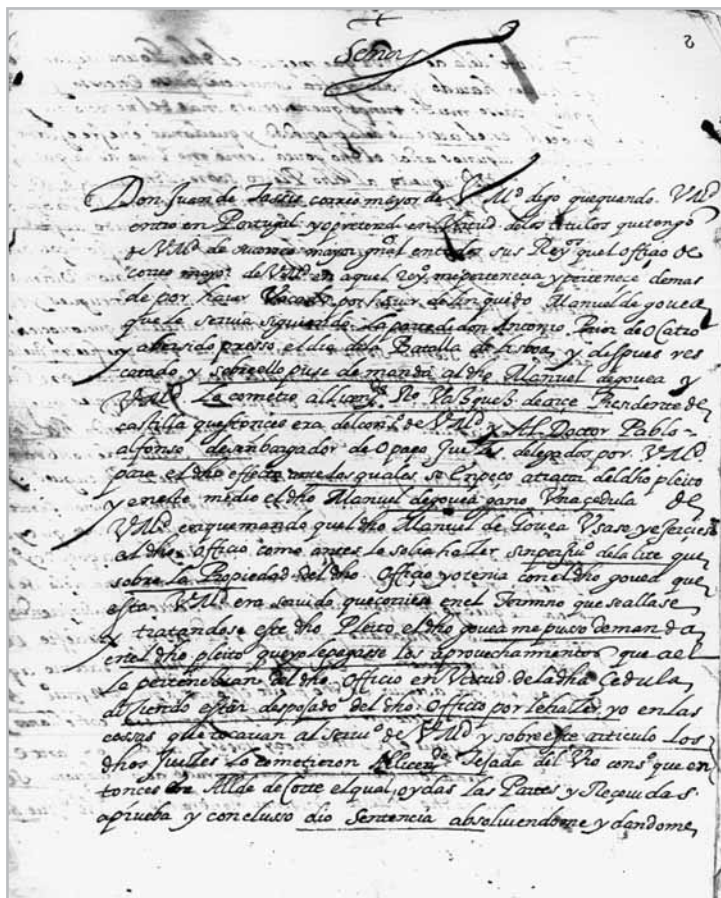 Señor
2
Don Juan de Tassis correo mayor de V Mᵈ digo que quando V Mᵈ
entro en Portugal yo pretendi en Virtud de los titulos que tengo
de V Mᵈ de correo mayor gñal en todos sus Reyᵒˢ quel officio de
correo mayor de V Mᵈ en aquel reyᵒ me pertenecia y pertenece demas
de por haver Vacado por haver delinquido Manuel de gouea
que le seruia siguiendo la parte de don Antonio Prior de Ocrato
y aber sido presso el dia de la Batalla de lisboa y despues res
catado y sobre ello puse demanda al dho Manuel de gouea y
V Mᵈ Lo cometio al licenᵈᵒ Rᵒ Vazquez de arce Presidente de
castilla questonces era del consᵒ de V Mᵈ y Al Doctor Pablo
alfonso desenbargador de Opaço Juezes delegados por V Mᵈ
para el dho efecto ante los quales se Enpeço a tratar del dho pleito
y en este medio el dho Manuel de gouea gano Vna çedula de
V Mᵈ en que mando quel dho Manuel de Gouea Vsase y exerciese
el dho officio como antes lo solia hazer sin perjuiᵒ de la lite que
sobre la Propiedad del dho Officio yo tenia con el dho gouea que
esta V Mᵈ era seruido que coriese en el Termino que se allase
y tratandose este dho Pleito el dho gouea me puso demanda
en el dho pleito que yo le pagase los aprovechamientos que a el
le pertenecian del dho Officio en Virtud de la dha Çedula
diziendo estar desposado del dho Officio por le hazer yo en las
cossas que tocauan al seruiᵒ de V Mᵈ y sobre este articulo Los
dhos Juezes Lo cometieron Al licenᵈᵒ Tejada del Vro consᵒ que en
tonces era Allde de Corte el qual oydas las Partes y Reçeuidas
a prueba y conclusso dio Sentencia absoluiendome y dandome